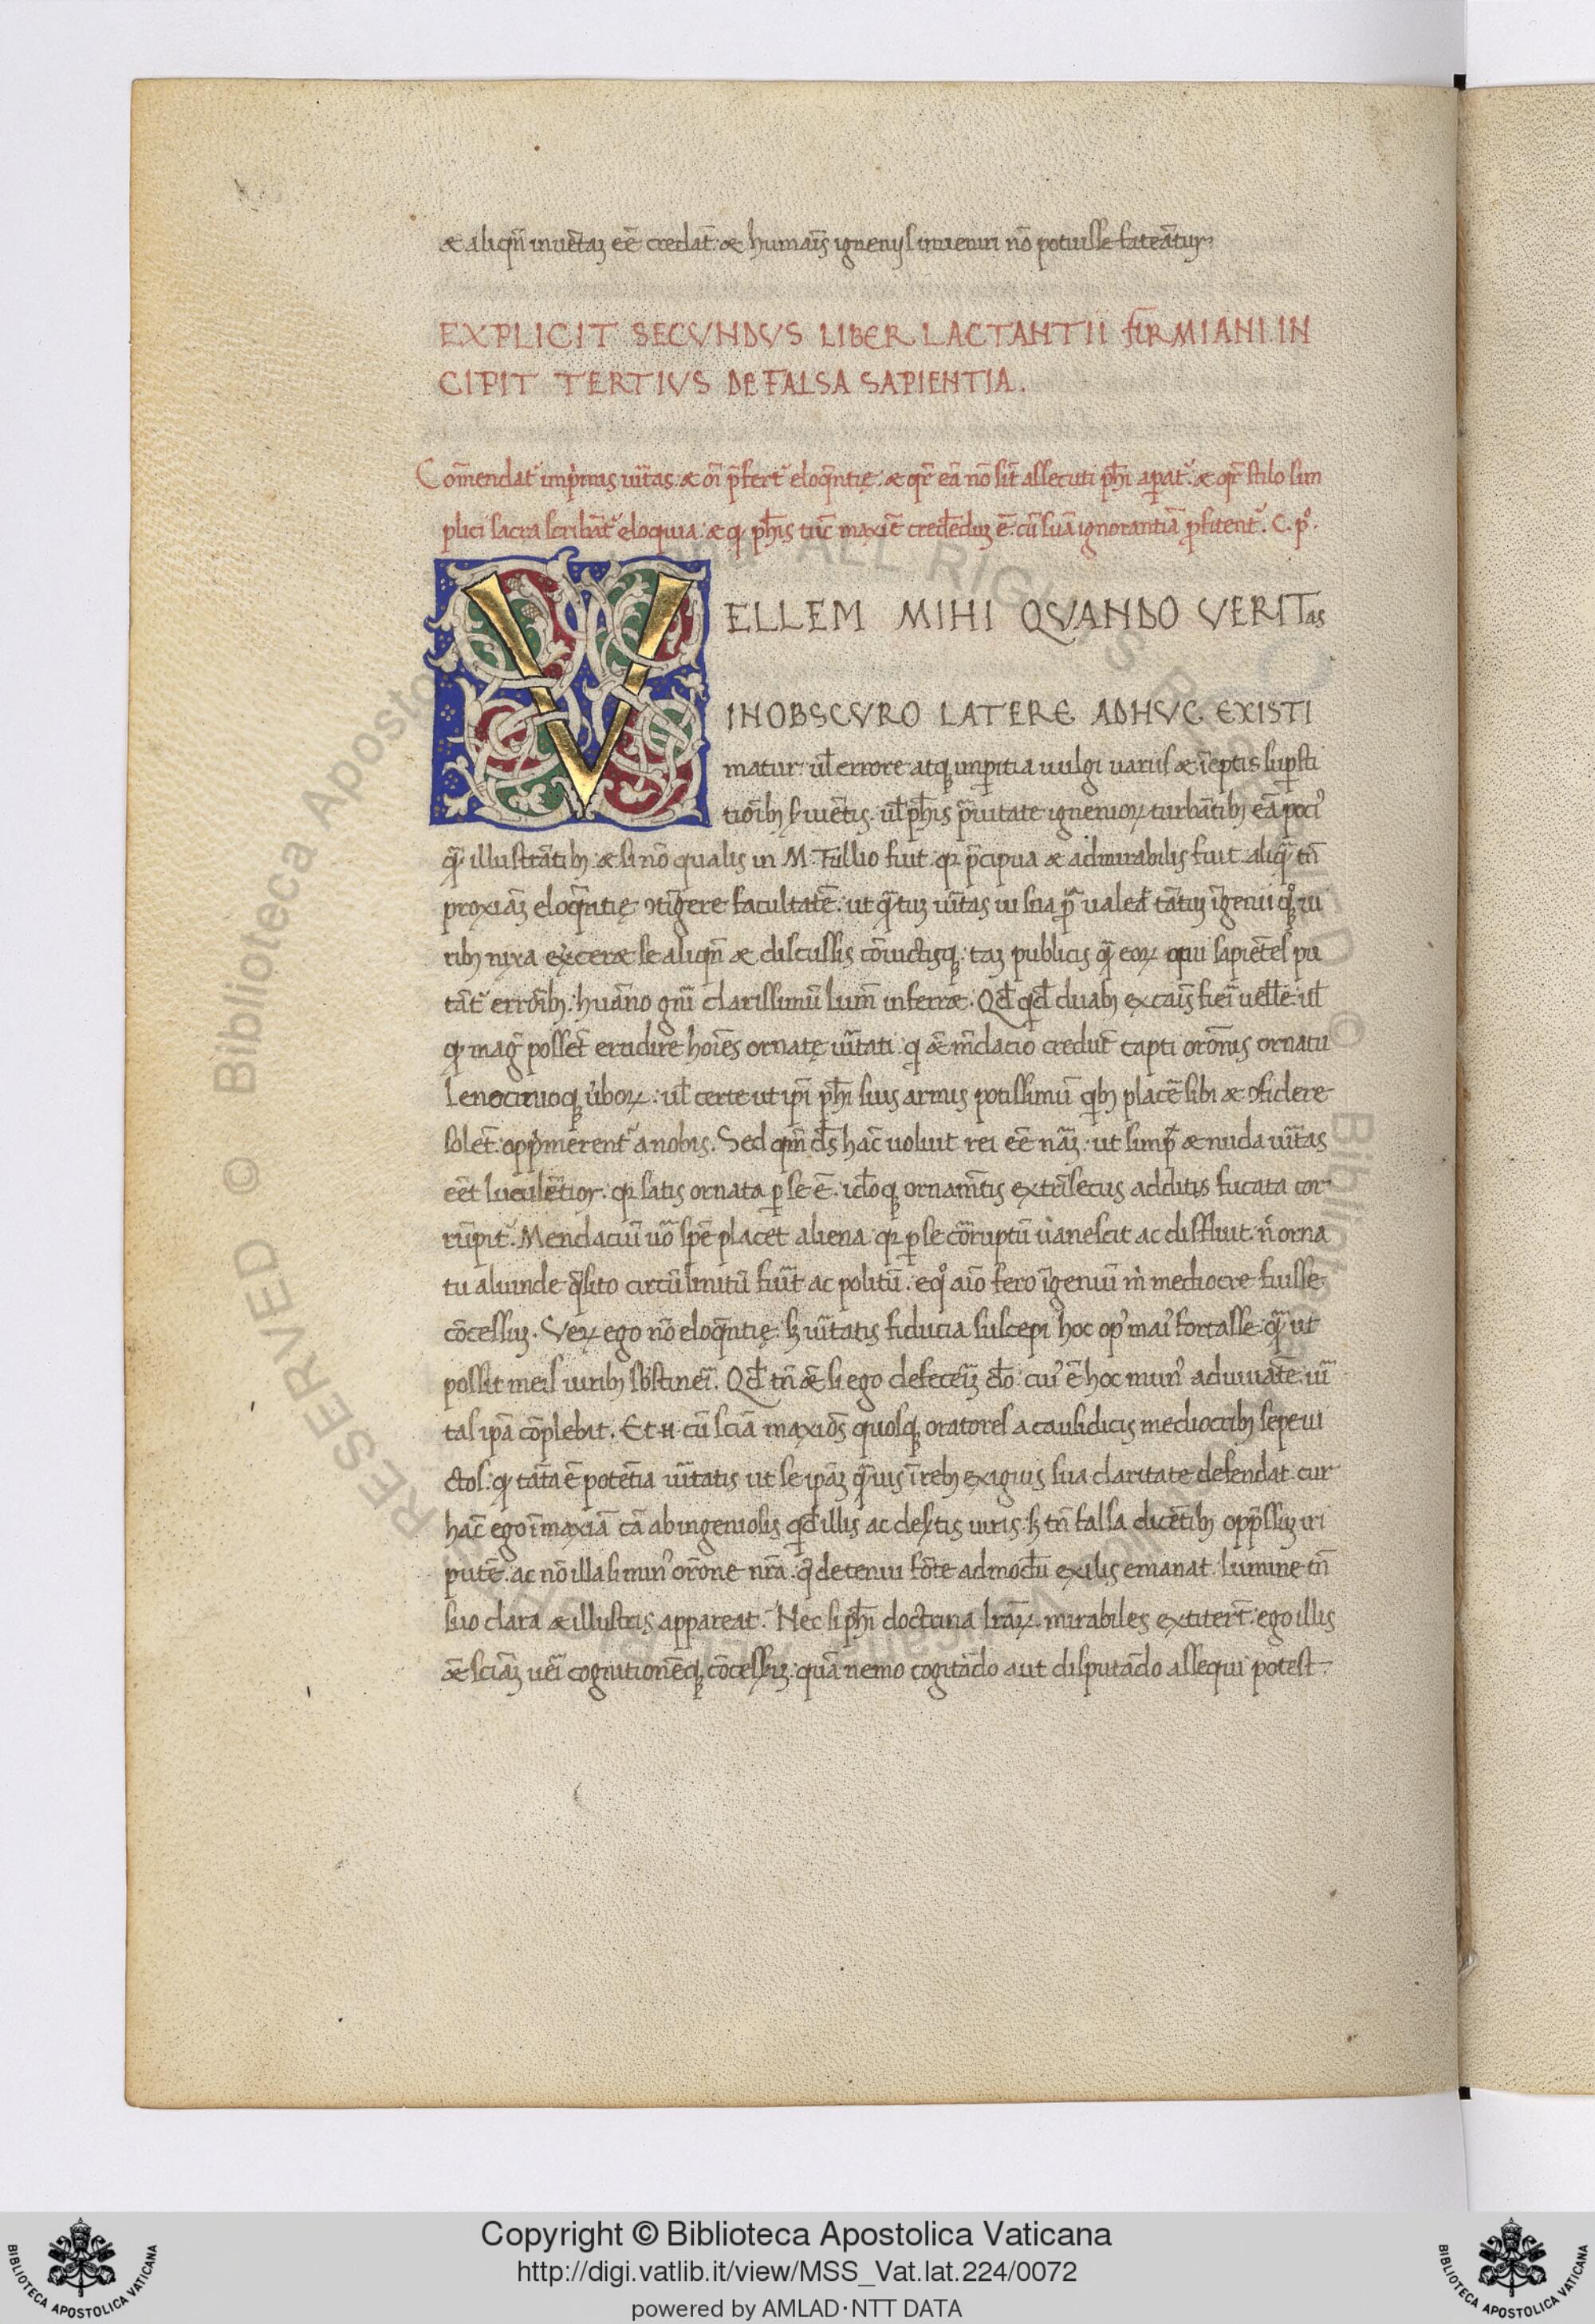 & aliqn̄ inuētaʒ eē credat̄: & humaīs igenijs inueniri nō potuisse fateātur:
EXPLICIT SECVNDVS LIBER LACTANTII FIRMIANI. IN
CIPIT TERTIVS DE FALSA SAPIENTIA.
eloqn̄tię: & qr̄ eā nō sīt assecuti ph̄i & qr̄ stilo sim
plici sacra scribāt᷒ eloquia: & ph̄is tūc maxīe credēduʒ ē: cū suā ignorantiā ꝓfitent᷒. C. pº.
VELLEM MIHI QVANDO VERITas
IN OBSCVRO LATERE ADHVC EXISTI
matur: ul̄ errore atqʒ imꝑitia uulgi uariis & īeptis suꝑsti
tiōibꝫ ul̄ ph̄is prauitate igeniorꝝ turbātibꝫ eā poti᷒
qȝ illustrātibꝫ & si nō qualis in M. Tullio fuit: qꝛ p̄cipua & admirabilis fuit: aliqȝ tn̄
proxiāʒ eloqn̄tię ꝯtīgere facultatē: ut
nixa exere se aliqn̄ & discussis cōuictisqʒ: taʒ publicis qȝ eorꝝ qui sapiētes pu
tāt᷒ errōibꝫ: huāno gn̄i clarissimū lum̄ inferre. Qd̄ qd̄ē duabꝫ ex cāis fieī uelle: ul̄
possēt erudire hoīes ornatę uītati: q & m̄dacio credūt capti orōnis ornatu
lenocinioqʒ ūborꝝ: ul̄ certe ut ip̄i ph̄i suis armis potissimū qibꝫ placē sibi & ꝯfidere
solēt: oppͥmerent᷒ a nobis. Sed qm̄ ds̄ hāc uoluit rei eē nāʒ: ut simp̄ & nuda uītas
eēt luculētior: qꝛ satis ornata ꝑ se ē: idōqʒ ornam̄tis extrīsecus additis fucata cor
rūpit᷒. Mendaciū uō spē placet aliena: qꝛ ꝑ se corruptū uanescit ac diffluit: nͥ orna
tu aliunde qͣsito circūlinitū fūit ac politū. eqº aīo fero īgeniū mͥ mediocre fuisse
cōcessuʒ. Verꝝ ego nō eloqn̄tię: sʒ uītatis fiducia suscepi hoc op᷒ mai᷒ fortasse: qȝ ut
possit meis uiribꝫ sustineī. Qd̄ tn̄ & si ego defeceīʒ dō: cui᷒ ē hoc mun᷒ adiuuāte: uī
tas ipā cōplebit. Et .n. cū sciā maxiōs quosqʒ oratores a causidicis mediocribꝫ sepe ui
ctos: qꝛ tāta ē potētia uītatis ut se ipāʒ qȝuis ī rebꝫ exiguis sua claritate defendat: cur
hāc ego ī maxīa cā ab ingeniosis qd̄ē illis ac dis̄tis uiris: sʒ tn̄ falsa dicētibꝫ opp̄ssuʒ iri
putē: ac nō illa si min᷒ orōne nr̄a: q̄ de tenui fōte admodū exilis emanat: lumine tn̄
suo clara & illustris appareat. Nec si ph̄i doctrina lr̄aꝝ mirabiles extitert̄: ego illis
& sciāʒ ueī cognitionēqʒ cōcessiʒ: quā nemo cogitādo aut disputādo assequi potest:
© Biblioteca Apostolica Vaticana ALL RIGHTS RESERVED
Copyright © Biblioteca Apostolica Vaticana
http://digi.vatlib.it/view/MSS_Vat.lat.224/0072
powered by AMLAD·NTT DATA
BIBLIOTECA APOSTOLICA VATICANA
BIBLIOTECA APOSTOLICA VATICANA